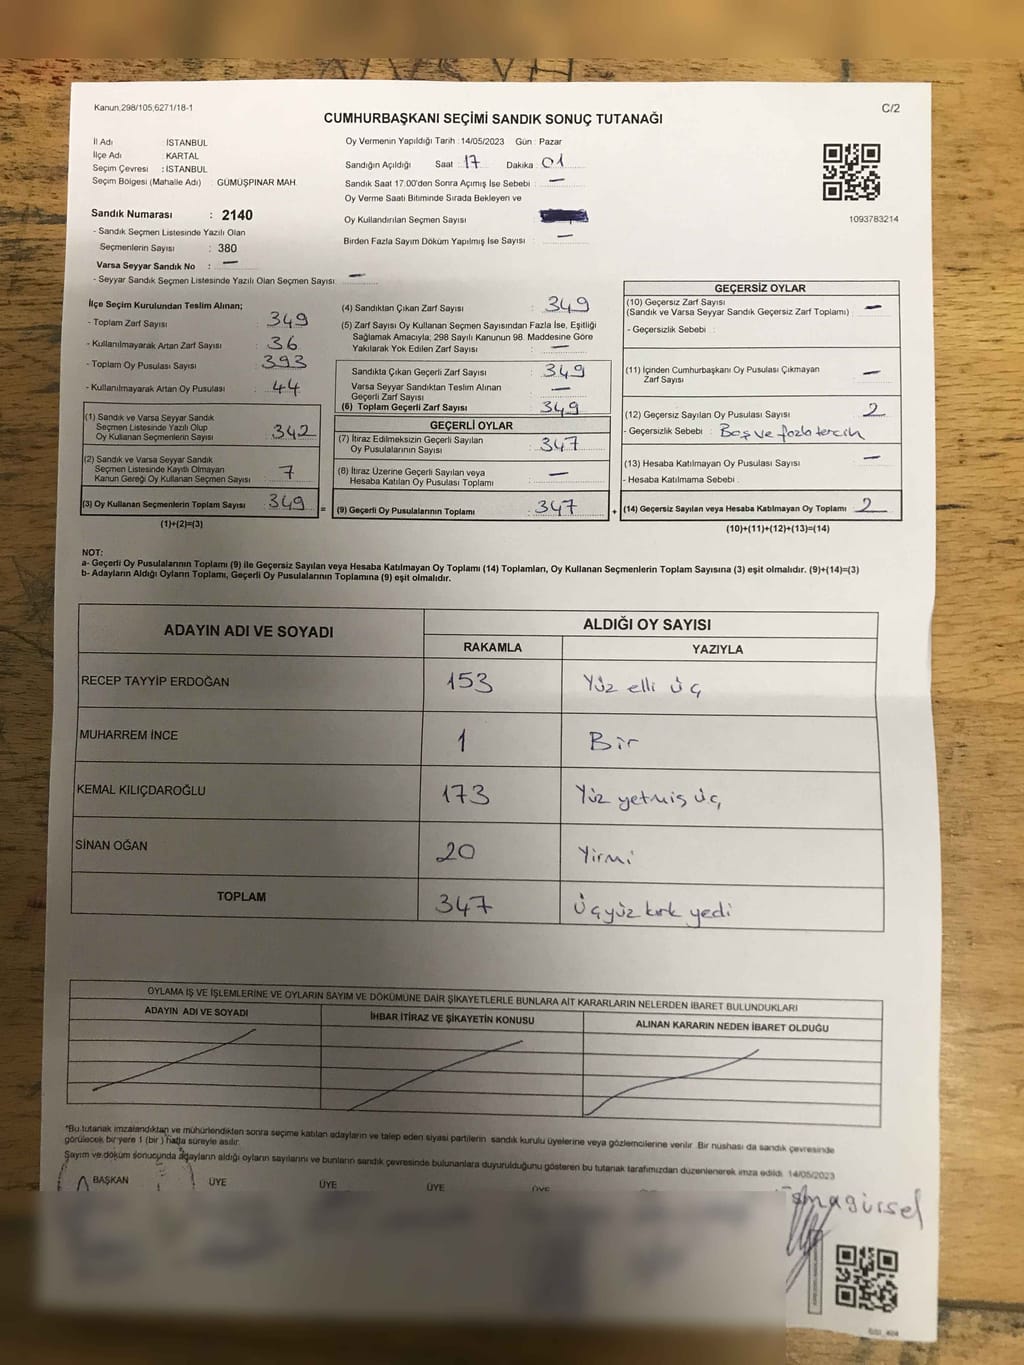 Kanun,298/105,6271/18-1
C/2
CUMHURBAŞKANI SEÇİMİ SANDIK SONUÇ TUTANAĞI
İl Adı : İSTANBUL
İlçe Adı : KARTAL
Seçim Çevresi : İSTANBUL
Seçim Bölgesi (Mahalle Adı) : GÜMÜŞPINAR MAH.
Sandık Numarası : 2140
- Sandık Seçmen Listesinde Yazılı Olan
Seçmenlerin Sayısı : 380
Varsa Seyyar Sandık No : —
- Seyyar Sandık Seçmen Listesinde Yazılı Olan Seçmen Sayısı: —
Oy Vermenin Yapıldığı Tarih : 14/05/2023 Gün : Pazar
Sandığın Açıldığı Saat : 17 Dakika : 01
Sandık Saat 17.00'den Sonra Açımış İse Sebebi : —
Oy Verme Saati Bitiminde Sırada Bekleyen ve
Oy Kullandırılan Seçmen Sayısı
Birden Fazla Sayım Döküm Yapılmış İse Sayısı : —
1093783214
İlçe Seçim Kurulundan Teslim Alınan;
- Toplam Zarf Sayısı : 349
- Kullanılmayarak Artan Zarf Sayısı : 36
- Toplam Oy Pusulası Sayısı : 393
- Kullanılmayarak Artan Oy Pusulası : 44
(1) Sandık ve Varsa Seyyar Sandık
Seçmen Listesinde Yazılı Olup
Oy Kullanan Seçmenlerin Sayısı : 342
(2) Sandık ve Varsa Seyyar Sandık
Seçmen Listesinde Kayıtlı Olmayan
Kanun Gereği Oy Kullanan Seçmen Sayısı : 7
(3) Oy Kullanan Seçmenlerin Toplam Sayısı : 349
(1)+(2)=(3)
(4) Sandıktan Çıkan Zarf Sayısı : 349
(5) Zarf Sayısı Oy Kullanan Seçmen Sayısından Fazla İse, Eşitliği
Sağlamak Amacıyla; 298 Sayılı Kanunun 98. Maddesine Göre
Yakılarak Yok Edilen Zarf Sayısı : —
Sandıkta Çıkan Geçerli Zarf Sayısı : 349
Varsa Seyyar Sandıktan Teslim Alınan
Geçerli Zarf Sayısı : —
(6) Toplam Geçerli Zarf Sayısı : 349
GEÇERLİ OYLAR
(7) İtiraz Edilmeksizin Geçerli Sayılan
Oy Pusulalarının Sayısı : 347
(8) İtiraz Üzerine Geçerli Sayılan veya
Hesaba Katılan Oy Pusulası Toplamı : —
= (9) Geçerli Oy Pusulalarının Toplamı : 347 +
GEÇERSİZ OYLAR
(10) Geçersiz Zarf Sayısı
(Sandık ve Varsa Seyyar Sandık Geçersiz Zarf Toplamı) : —
- Geçersizlik Sebebi :
(11) İçinden Cumhurbaşkanı Oy Pusulası Çıkmayan
Zarf Sayısı : —
(12) Geçersiz Sayılan Oy Pusulası Sayısı : 2
- Geçersizlik Sebebi : Boş ve fazla tercih
(13) Hesaba Katılmayan Oy Pusulası Sayısı : —
- Hesaba Katılmama Sebebi :
(14) Geçersiz Sayılan veya Hesaba Katılmayan Oy Toplamı : 2
(10)+(11)+(12)+(13)=(14)
NOT:
a- Geçerli Oy Pusulalarının Toplamı (9) ile Geçersiz Sayılan veya Hesaba Katılmayan Oy Toplamı (14) Toplamları, Oy Kullanan Seçmenlerin Toplam Sayısına (3) eşit olmalıdır. (9)+(14)=(3)
b- Adayların Aldığı Oyların Toplamı, Geçerli Oy Pusulalarının Toplamına (9) eşit olmalıdır.
ADAYIN ADI VE SOYADI ALDIĞI OY SAYISI
RAKAMLA YAZIYLA
RECEP TAYYİP ERDOĞAN 153 Yüz elli üç
MUHARREM İNCE 1 Bir
KEMAL KILIÇDAROĞLU 173 Yüz yetmiş üç
SİNAN OĞAN 20 Yirmi
TOPLAM 347 Üçyüz kırk yedi
OYLAMA İŞ VE İŞLEMLERİNE VE OYLARIN SAYIM VE DÖKÜMÜNE DAİR ŞİKAYETLERLE BUNLARA AİT KARARLARIN NELERDEN İBARET BULUNDUKLARI
ADAYIN ADI VE SOYADI İHBAR,İTİRAZ VE ŞİKAYETİN KONUSU ALINAN KARARIN NEDEN İBARET OLDUĞU
*Bu tutanak imzalandıktan ve mühürlendikten sonra seçime katılan adayların ve talep eden siyasi partilerin sandık kurulu üyelerine veya gözlemcilerine verilir. Bir nüshası da sandık çevresinde
görülecek bir yere 1 (bir) hafta süreyle asılır.
Sayım ve döküm sonucunda adayların aldığı oyların sayılarını ve bunların sandık çevresinde bulunanlara duyurulduğunu gösteren bu tutanak tarafımızdan düzenlenerek imza edildi. 14/05/2023
BAŞKAN ÜYE ÜYE ÜYE ÜYE